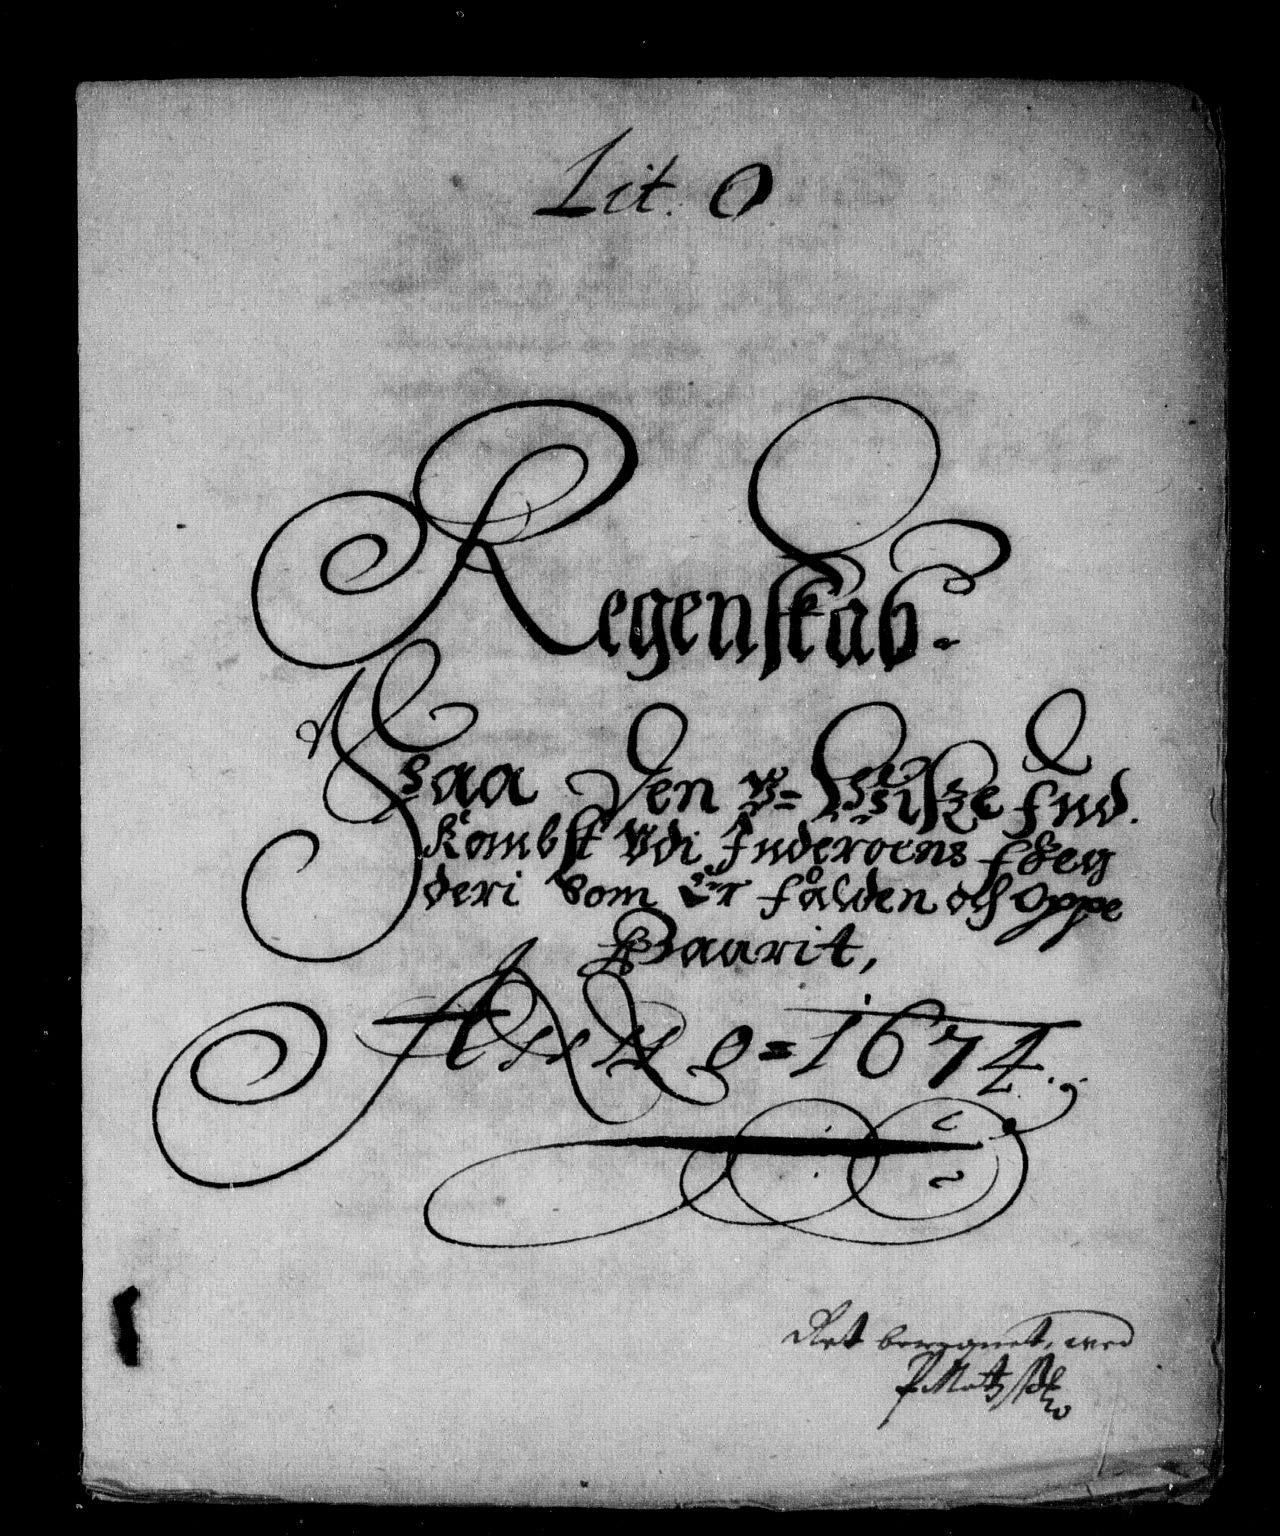 Lit. O
Regenskab.
Paa Den U=Wisze Ind.
Kombst Udi Inderöens fogen
deri Som Er falden och Oppe
Baarit,
Anno=1674.
Ret beregnet,